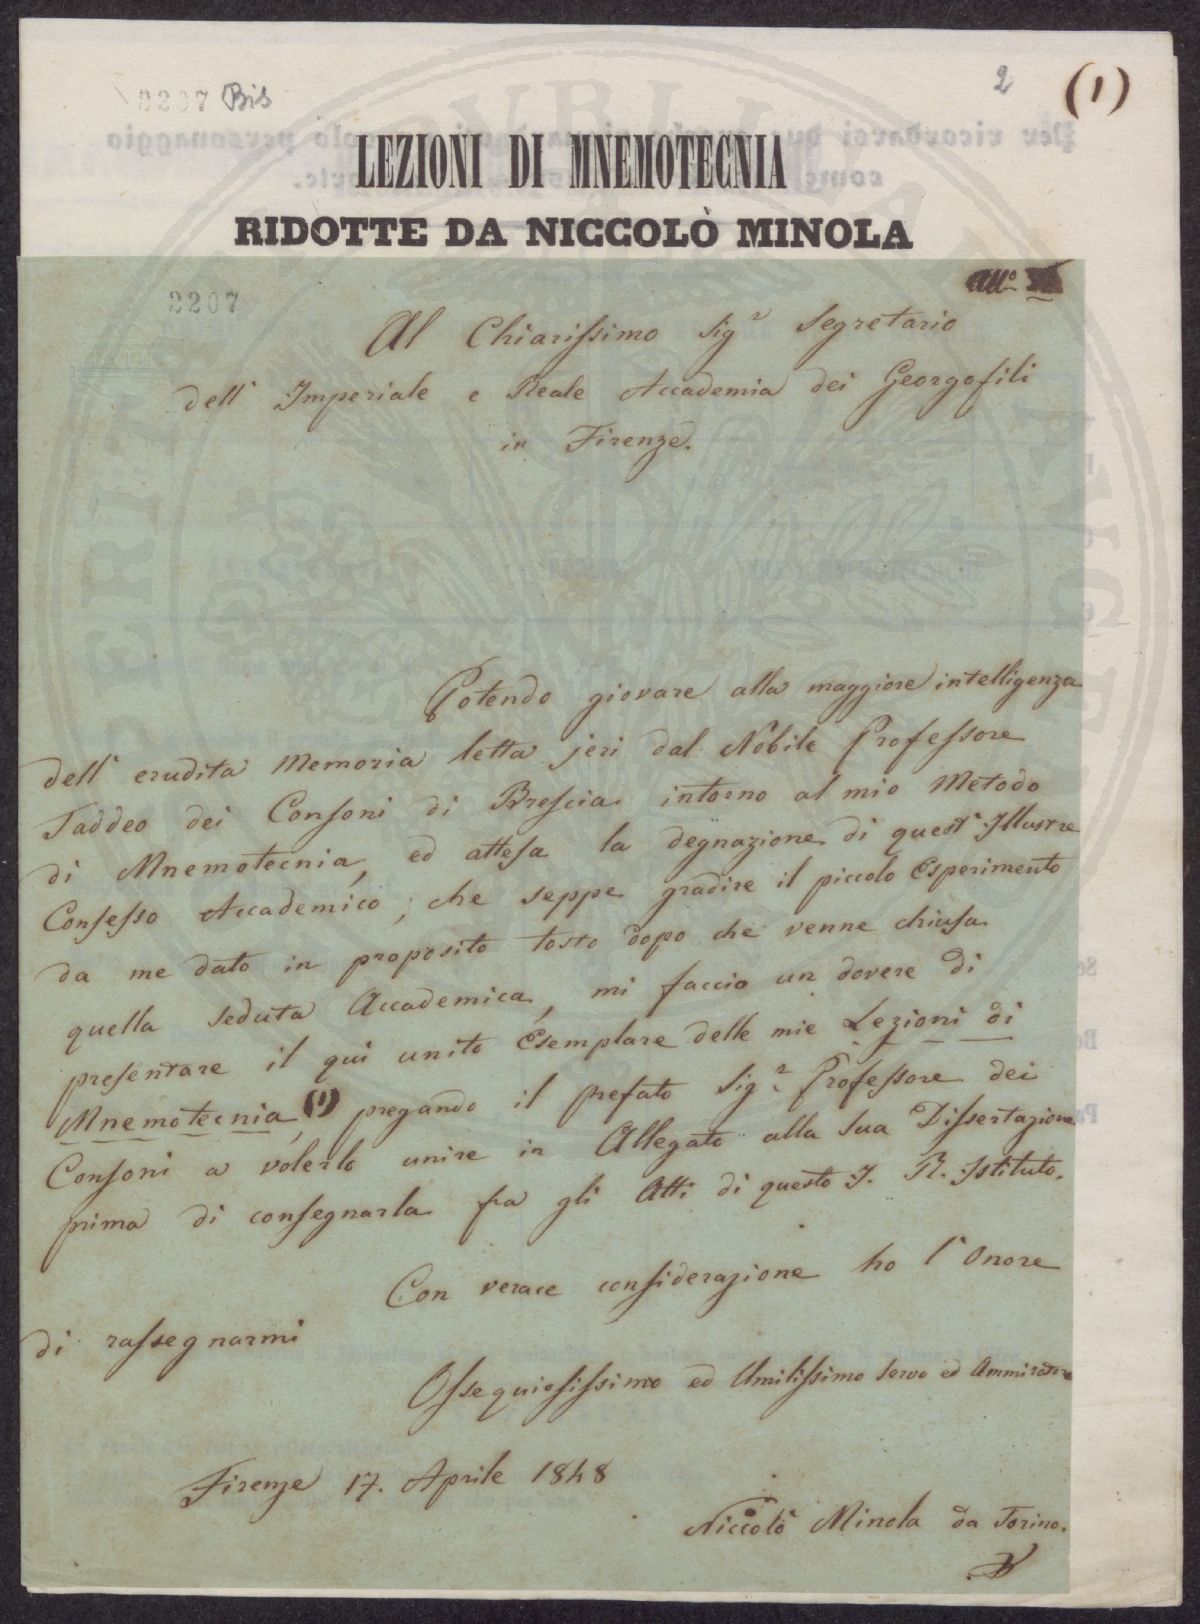 2207 Bis
2 (1)
LEZIONI DI MNEMOTECNIA
RIDOTTE DA NICCOLÒ MINOLA
All.º
2207
Al Chiarissimo Sigr Segretario
dell' Imperiale e Reale Accademia dei Georgofili
in Firenze.
Potendo giovare alla maggiore intelligenza
dell' erudita Memoria letta jeri dal Nobile Professore
Taddeo dei Consoni di Brescia intorno al mio Metodo
di Mnemotecnia, ed attesa la degnazione di quest' Illustre
Consesso Accademico, che seppe gradire il piccolo Esperimento
da me dato in proposito tosto dopo che venne chiusa
quella seduta Accademica, mi faccio un dovere di
presentare il qui unito Esemplare delle mie Lezioni di
Mnemotecnia, (1) pregando il prefato Sigr. Professore dei
Consoni a volerlo unire in Allegato alla sua Dissertazione
prima di consegnarla fra gli Atti di questo I. R. Istituto.
Con verace considerazione ho l' Onore
di rassegnarmi
Ossequiosissimo ed Umilissimo servo ed Ammiratore
Firenze 17. Aprile 1848
Niccolò Minola da Torino.